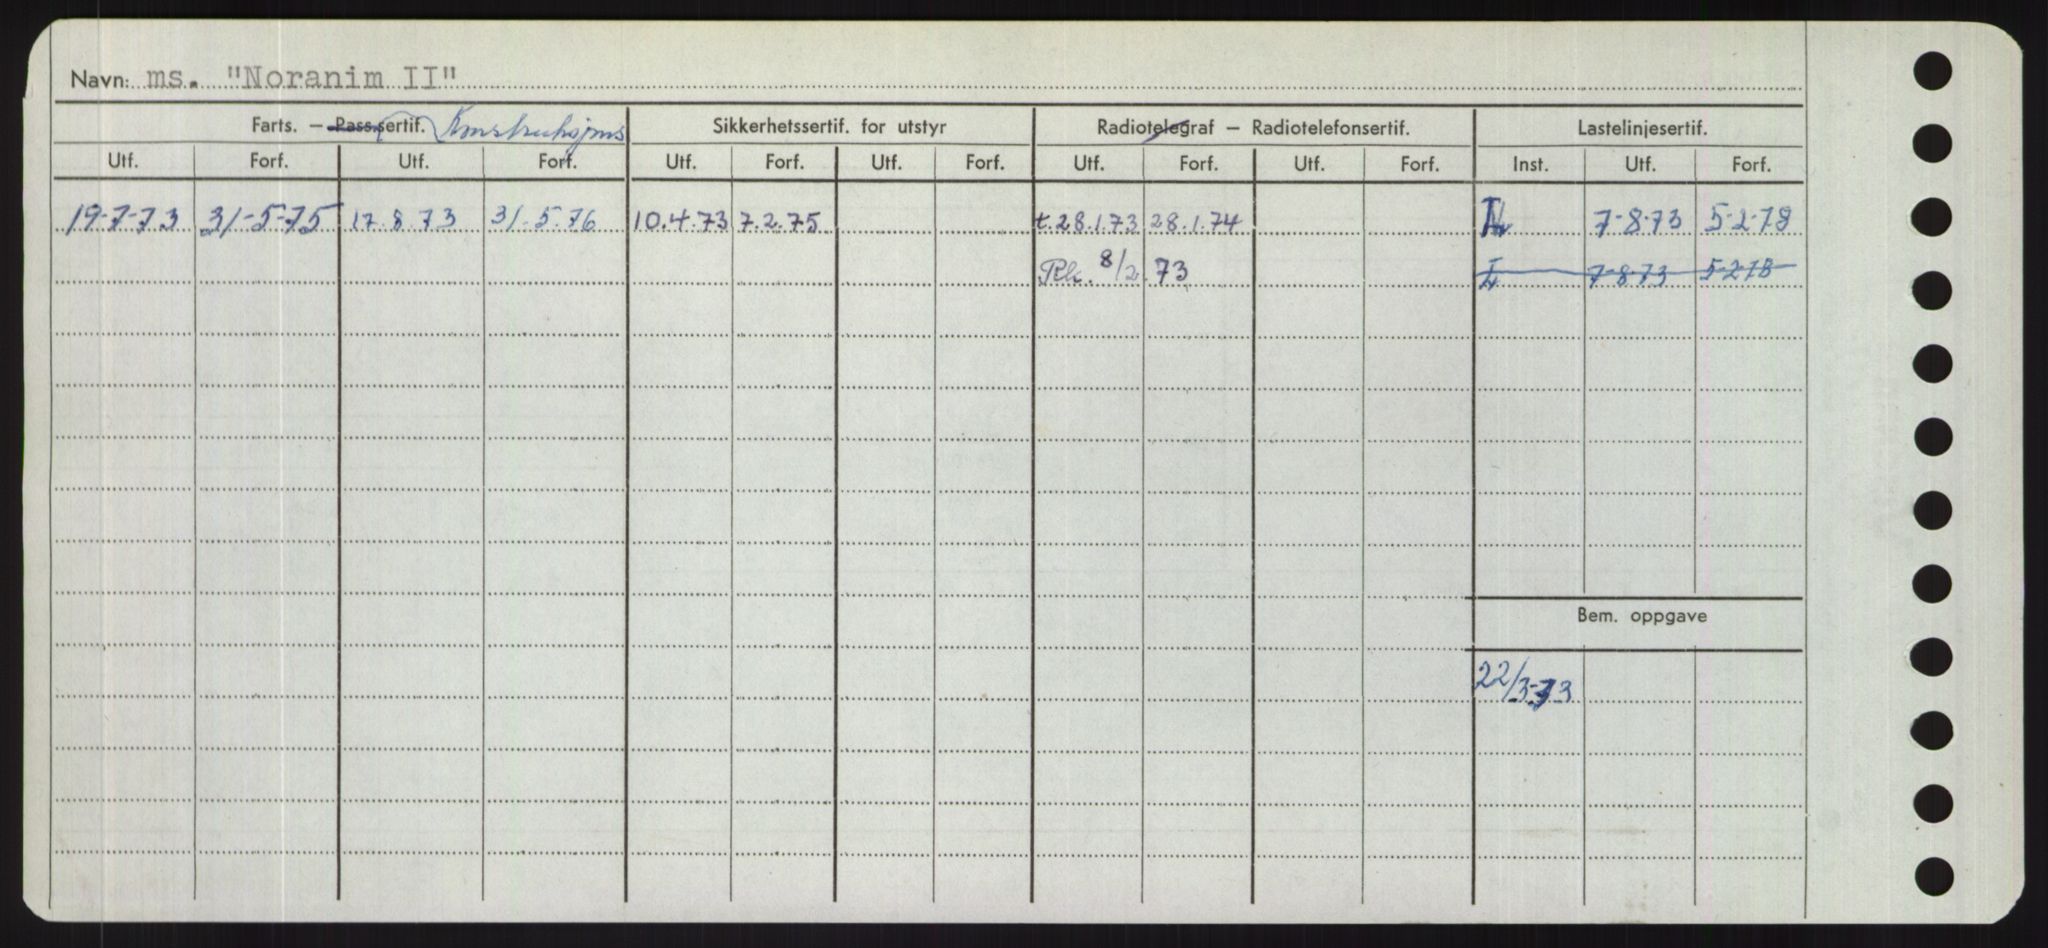 Navn: ms. "Noranim II"
Farts. – Pass.sertif. Konstruksjons Sikkerhetssertif. for utstyr Radiotelegraf – Radiotelefonsertif. Lastelinjesertif.
Utf. Forf. Utf. Forf. Utf. Forf. Utf. Forf. Utf. Forf. Utf. Forf. Inst. Utf. Forf.
19-7-73 31-5-75 17.8.73 31.5.76 10.4.73 7.2.75 t.28.1.73 28.1.74 7-8-73 5-2-78
Rk. 8/2.73 7-8-73 5-2-78
Bem. oppgave
22/3-73